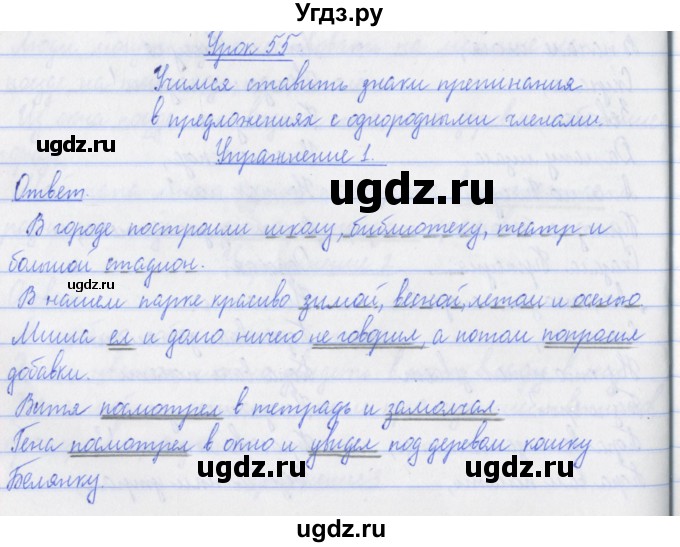 Угдз.ру
Урок 55
Учимся ставить знаки препинания
в предложениях с однородными членами.
ugdz.ru
Упражнение 1.
ugdz.ru
Ответ.
В городе построили школу, библиотеку, театр и
большой стадион.
ugdz.ru
В нашем парке красиво зимой, весной, летом и осенью.
Миша ел и долго ничего не говорил, а потом попросил
добавки.
ugdz.ru
Витя посмотрел в тетрадь и замолчал.
Гена посмотрел в окно и увидел под деревом кошку
Белянку.
ugdz.ru
ugdz.ru
ugdz.ru